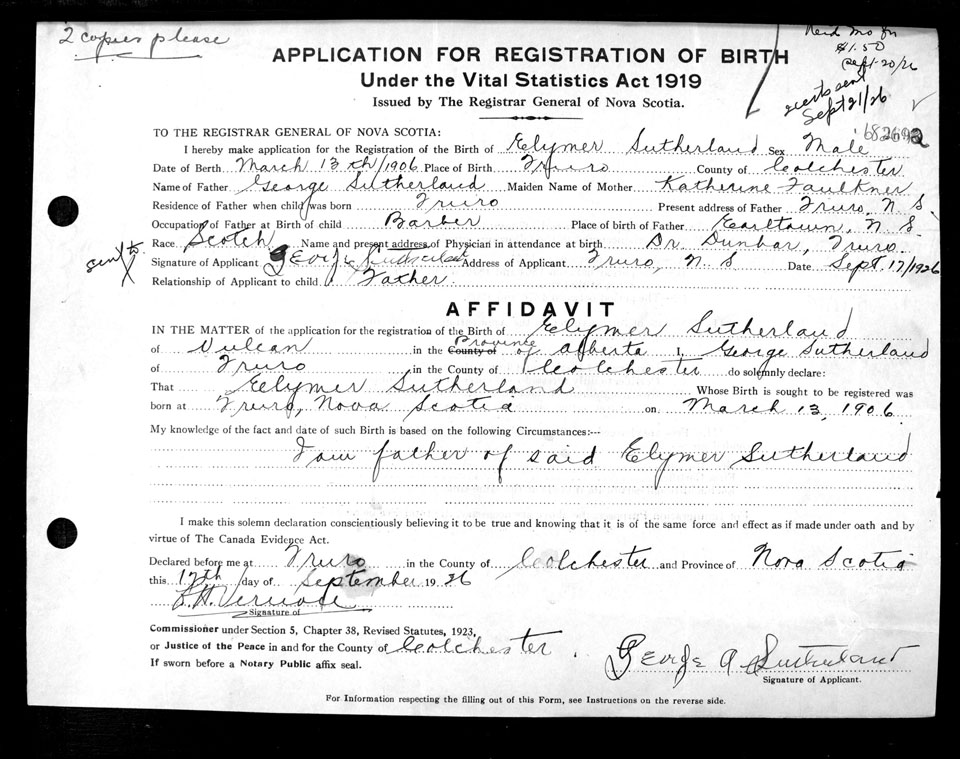 2 copies please
$1.50
Sept 20/26
sent
Sept 21/26
APPLICATION FOR REGISTRATION OF BIRTH
Under the Vital Statistics Act 1919
Issued by The Registrar General of Nova Scotia.
TO THE REGISTRAR GENERAL OF NOVA SCOTIA:
I hereby make application for the Registration of the Birth of Elymer Sutherland Sex Male
Date of Berth March 13th/1906 Place of Birth Truro County of Colchester
Name of Father George Sutherland Maiden Name of Mother Katherine Faulkner
Residence of Father when child was born Truro Present address of Father Truro, N S
Occupation of Father at Birth of child Barber Place of birth of Father Earltown, N. S.
Race. Scotch Name and present address of Physician in attendance at birth Dr. Dunbar, Truro.
Signature of Applicant George Sutherland Address of Applicant Truro, N. S Date Sept 17/1926
Relationship of Applicant to child Father.
AFFIDAVIT
IN THE MATTER of the application for the registration of the Birth of Elymer Sutherland
of Vulcan in the County of Province of Alberta I, George Sutherland
of Truro in the County of Colchester do solemnly declare:
That Elymer Sutherland Whose Birth is sought to be registered was
born at Truro, Nova Scotia on March 13, 1906.
My knowledge of the fact and date of such Birth is based on the following Circumstances:--
I am father of said Elymer Sutherland
I make this solemn declaration conscientiously believing it to be true and knowing that it is of the same force and effect as if made under oath and by
virtue of The Canada Evidence Act.
Declared before me at Truro in the County of Colchester and Province of Nova Scotia
this 17th day of September 1926
Signature of
Commissioner under Section 5, Chapter 38, Revised Statutes, 1923,
or Justice of the Peace in and for the County of Colchester.
If sworn before a Notary Public affix seal.
George A Sutherland
Signature of Applicant.
For Information respecting the filling out of this Form, see Instructions on the reverse side.